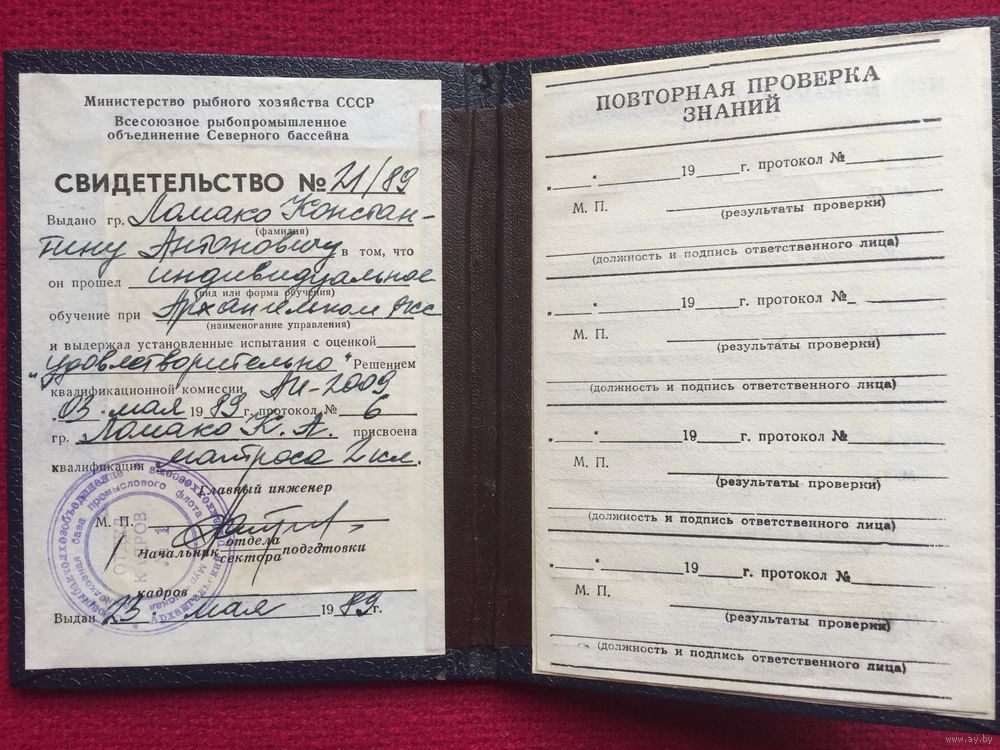 Министерство рыбного хозяйства СССР
Всесоюзное рыбопромышленное
объединение Северного бассейна
СВИДЕТЕЛЬСТВО № 21/89
Выдано гр. Ломако Констан-
(фамилия)
тину Антоновичу в том, что
он прошел индивидуальное
(вид или форма обучения)
обучение при Архангельском
(наименование управления)
и выдержал установленные испытания с оценкой
"удовлетворительно" Решением
квалификационной комиссии
"03" мая 1989 г. протокол № 6
гр. Ломако К. А. присвоена
квалификация матроса 2 кл.
Главный инженер
М. П.
Начальник отдела
сектора подготовки
кадров
Выдан 23. мая 1989 г.
ПОВТОРНАЯ ПРОВЕРКА
ЗНАНИЙ
"___" 19___г. протокол №
М. П.
(результаты проверки)
(должность и подпись ответственного лица)
"___" 19___г. протокол №
М. П.
(результаты проверки)
(должность и подпись ответственного лица)
"___" 19___г. протокол №
М. П.
(результаты проверки)
(должность и подпись ответственного лица)
"___" 19___г. протокол №
М. П.
(результаты проверки)
(должность и подпись ответственного лица)
www.ay.by